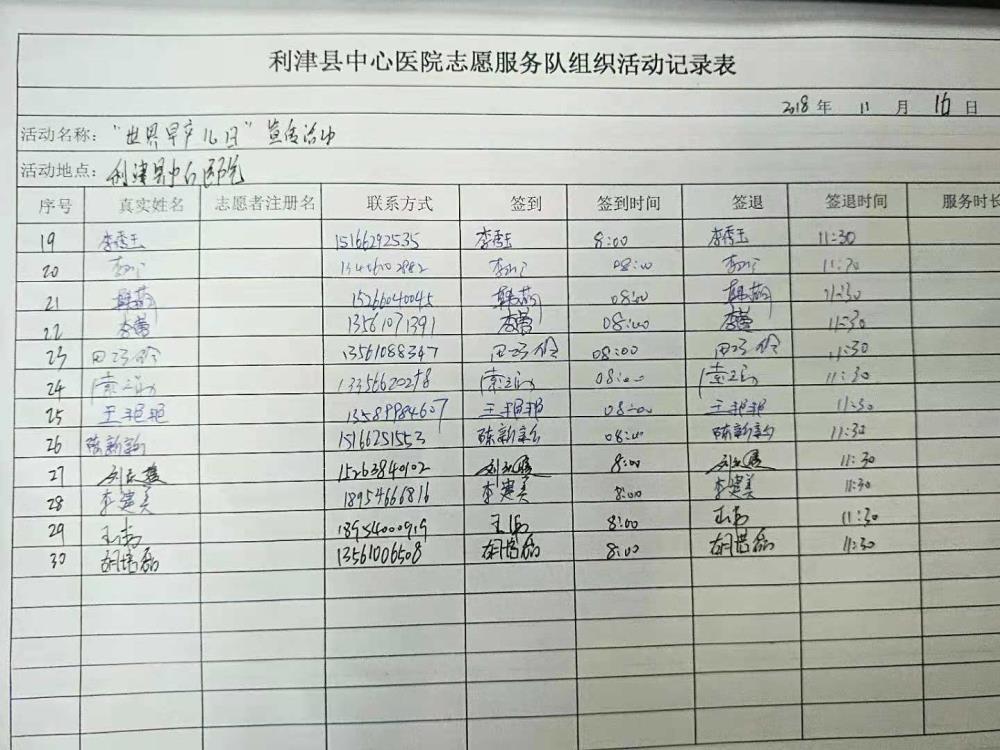 利津县中心医院志愿服务队组织活动记录表
2018 年 11 月 16 日
活动名称："世界早产儿日"宣传活动
活动地点：利津县中心医院
序号 真实姓名 志愿者注册名 联系方式 签到 签到时间 签退 签退时间 服务时长
19 李秀玉 15166292535 李秀玉 8:00 李秀玉 11:30
20 08:00 11:30
21 韩萌 15266040045 韩萌 08:00 韩萌 11:30
22 李蕾 13561071391 李蕾 08:00 李蕾 11:30
23 田巧伶 13561088347 田巧伶 08:00 田巧伶 11:30
24 08:00 11:30
25 王艳艳 13589984607 王艳艳 08:00 王艳艳 11:30
26 陈新新 15166251553 陈新新 08:00 陈新新 11:30
27 15263840102 8:00 11:30
28 李建美 18954666816 李建美 8:00 李建美 11:30
29 18954000919 8:00 11:30
30 胡培磊 13561006508 胡培磊 8:00 胡培磊 11:30